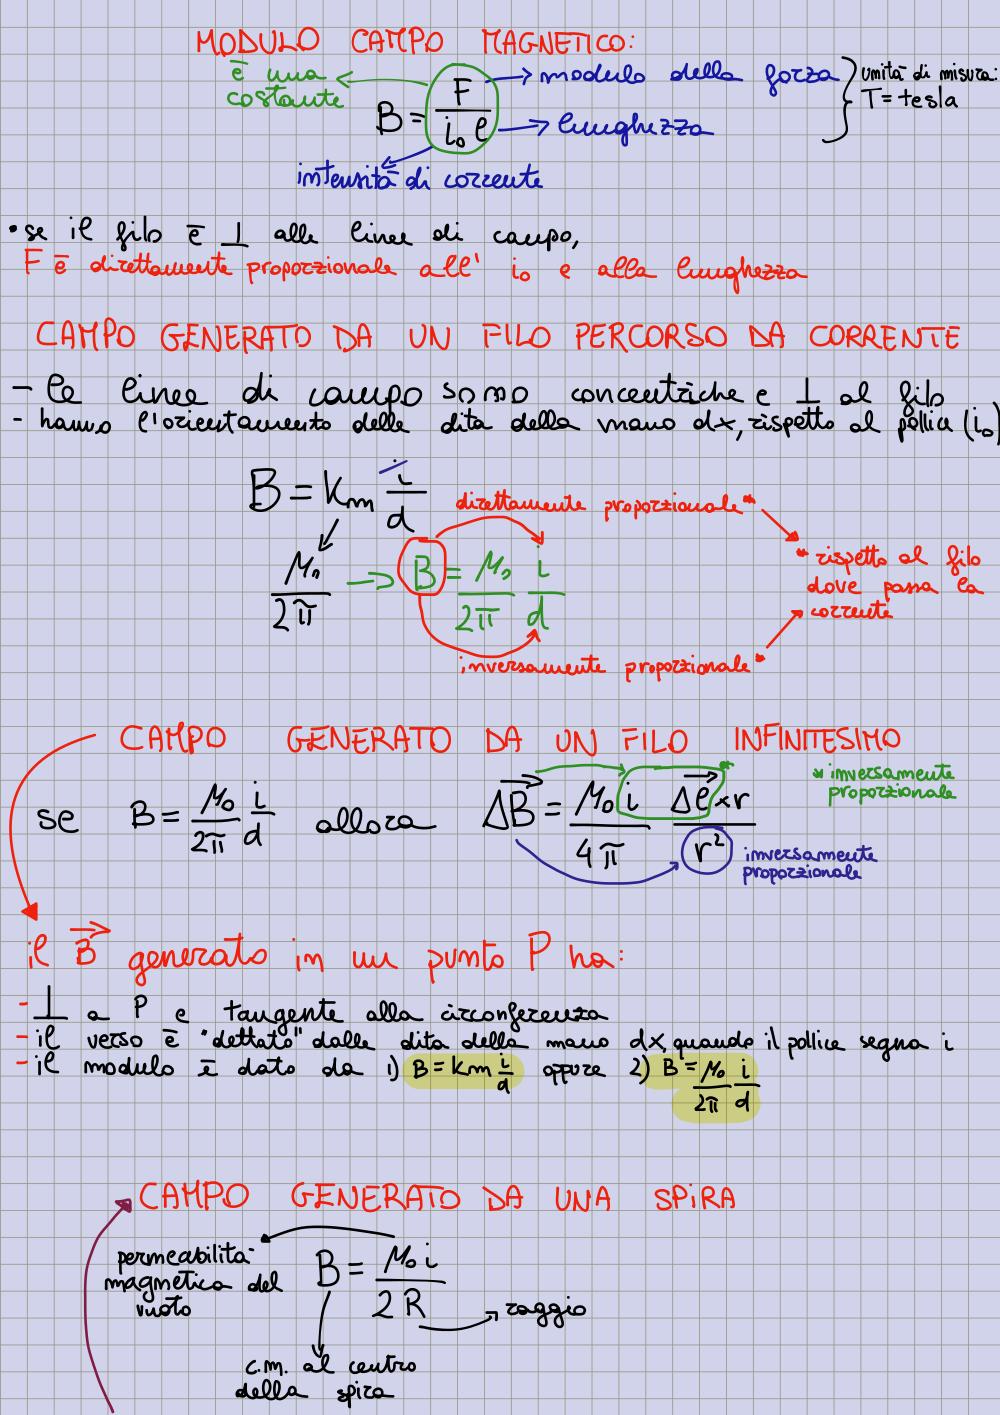 MODULO CAMPO MAGNETICO:
è una costante
B = F / i₀ l
modulo della forza
lunghezza
intensità di corrente
unità di misura:
T = tesla
• se il filo è ⊥ alle linee di campo,
F è direttamente proporzionale all' i₀ e alla lunghezza
CAMPO GENERATO DA UN FILO PERCORSO DA CORRENTE
- le linee di campo sono concentriche e ⊥ al filo
- hanno l'orientamento delle dita della mano dx, rispetto al pollice (i₀)
B = Km i / d
direttamente proporzionale*
μ₀ / 2π => B = μ₀ / 2π i / d
* rispetto al filo
dove passa la
corrente
inversamente proporzionale*
CAMPO GENERATO DA UN FILO INFINITESIMO
se B = μ₀ / 2π i / d allora ΔB⃗ = μ₀ i / 4π Δl⃗ x r / r²
* inversamente
proporzionale
inversamente
proporzionale
il B⃗ generato in un punto P ha:
- ⊥ a P e tangente alla circonferenza
- il verso è "dettato" dalle dita della mano dx, quando il pollice segna i
- il modulo è dato da 1) B = Km i / d oppure 2) B = μ₀ / 2π i / d
CAMPO GENERATO DA UNA SPIRA
permeabilità
magnetica del
vuoto
B = μ₀ i / 2 R
raggio
c.m. al centro
della spira